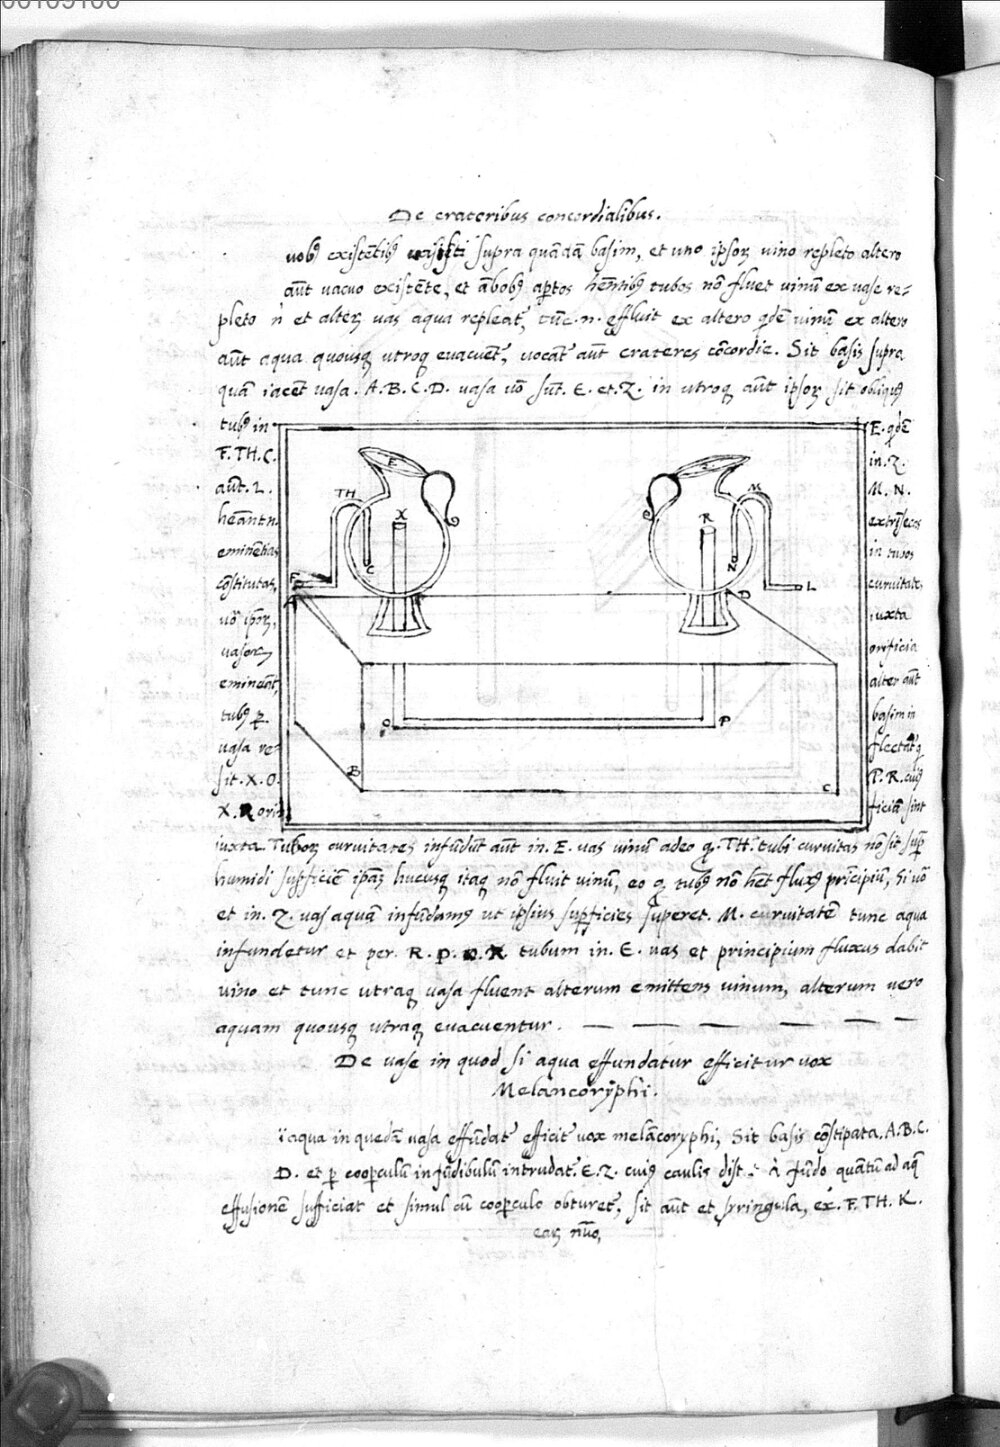 De crateribus concordialibus.
uobꝯ existẽtibꝯ supra quãdã basim, et uno ipsoꝝ uino repleto altero
aũt uacuo existẽte, et ãbobꝯ aꝑtos hẽntibꝯ tubos nõ fluet uinũ ex uase re-
pleto ñ et alteꝝ uas aqua repleat᷑, tũc .n. effluit ex altero qdẽ uinũ ex altero
aũt aqua quousqꝫ utroqꝫ euacuent᷑, uocant᷑ aũt crateres cõcordie. Sit basis supra
quã iacẽt uasa. A.B.C.D. uasa uõ sũt. E. et. Z. in utroqꝫ aũt ipsoꝝ sit obliquꝯ
tubꝯ in
F.TH.C.
aũt. L.
eminẽtias
cõstitutas,
uõ ipsoꝝ,
uasoꝝ
emineãt,
tubꝯ ꝑ.
uasa re-
sit. X. O.
X. R ori
E. qdẽ
in. Z.
M. N.
extrĩsecos
in tubos
curuitate,
iuxta
orificia
alter aũt
basim in
flectat᷑ qꝫ
P. R. cuiꝯ
ficia sint
TH
E
X
C
F
A
M
R
N
D
L
O
P
B
C
iuxta Tuboꝝ curuitates infũdũt aũt in. E. uas uinũ adeo qꝫ. TH. tubi curuitas nõ sit suꝑ
humidi sufficiẽ ipaꝫ hucusqꝫ itaqꝫ nõ fluit uinũ, eo qꝫ tubꝯ nõ hẽt fluxꝯ prĩcipiũ, si uõ
et in. Z. uas aquã infũdamꝯ ut ipsius supꝑficies superet. M. curuitatẽ tunc aqua
infundetur et per. R. P. O. X tubum in. E. uas et principium fluxus dabit
uino et tunc utraqꝫ uasa fluent alterum emittens uinum, alterum uero
aquam quousqꝫ utraqꝫ euacuentur. — — — — — —
De uase in quod si aqua effundatur efficitur uox
Melancoryphi.
i aqua in quedã uasa effũdat᷑ efficit᷑ uox melãcoryphi, Sit basis cõstipata. A.B.C.
D. et ꝑ cooꝑculũ infũdibulũ intrudat᷑. E. Z. cuiꝯ caulis dist à fũdo quãtũ ad aqꝫ
effusionẽ sufficiat et simul cũ cooꝑculo obturet᷑, sit aũt et syringula, ex. F. TH. K.